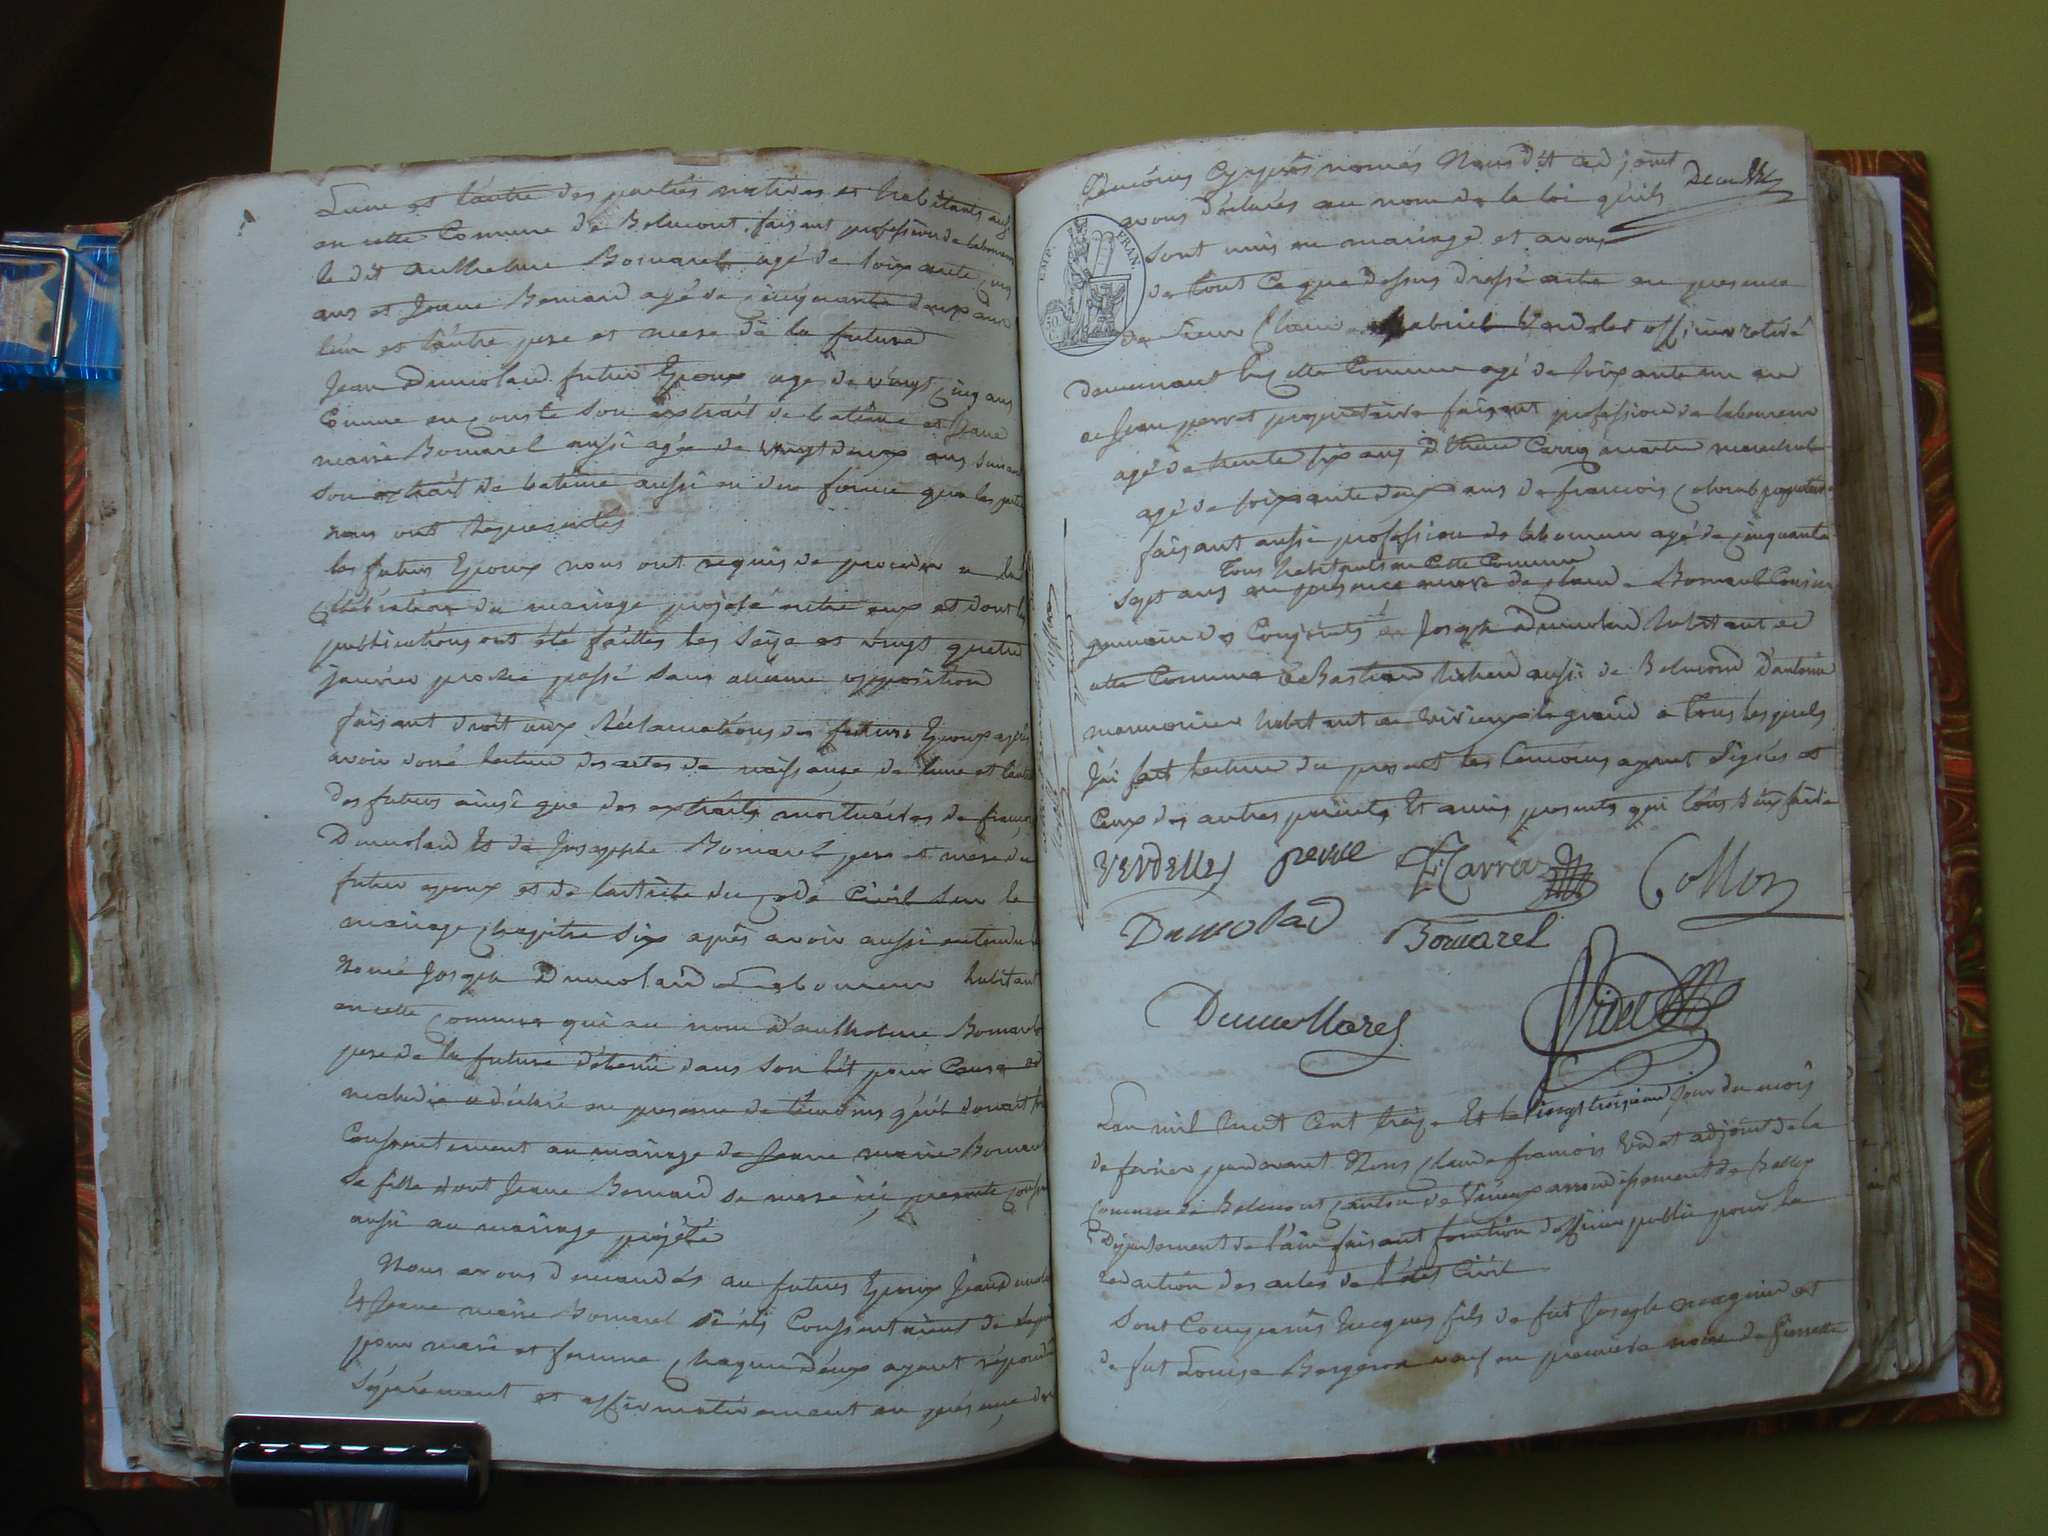 L'une et l'autre des parties natives et habitants
en cette Comune de Belmont, faisant profession de laboureur
le dit anthelme Bomarel agé de soixante cinq
ans et Jeane Bernard agé de cinquante deux ans
l'un et l'autre pere et mere de la future
Jean Dumolard futur Epoux age de vingt cinq ans
Comme en conste son extrait de batême et Jeane
marie Bomarel aussi agée de vingt deux ans suivant
son extrait de batême aussi en due forme que les
nous ont representés
les futurs Epoux nous ont requis de proceder a la
Célébration du mariage projeté entre eux et dont les
publications ont été faittes les seize et vingt quatre
janvier proche passé sans aucune opposition
faisant droit aux Réclamations des futurs Epoux après
avoir doné lecture des actes de naissance de l'une et l'autre
des futurs ainsi que des extraits mortuaires de françois
Dumolard Et de Josephte Bomarel pere et mere du
futur epoux et de l'article du code Civil sur le
mariage chapitre six après avoir aussi entendu
Nomé Joseph Dumolard Laboureur habitant
en cette comune qui au nom d'anthelme Bomarel
pere de la future détenu dans son lit pour Cause de
maladie a déclaré en presence de témoins qu'il donnoit son
Consentement au mariage de Jeane marie Bomarel
sa fille dont Jeane Bernard sa mere ici presente
aussi au mariage projété
Nous avons demandés au futurs Epoux Jean dumolard
Et Jeane marie Bomarel s'ils Consentaient de
pour mari et femme chaqun d'eux ayant répondu
séparément et affirmativement en présence des
témoins cy après només Nous dit adjoint
avons déclarés au nom de la loi qu'ils
sont unis en mariage et avons
EMP. FRAN.
de tout ce que dessus dressé acte en presence
de sieur Claude gabriel Verdelet officier retiré
demeurant en cette Comune agé de soixante un an
de Jean perret propriétaire faisant profession de laboureur
agé de trente six ans d'Etiene Carraz marechal
agé de soixante deux ans de francois Colomb propriétaire
faisant aussi profession de laboureur agé de cinquante
tous habitants en Cette Comune
sept ans en presence encore de claude Bomarel Cousin
germain des Conjoints et Joseph Dumolard habitant de
cette Comune Bastiand aussi de Belmond d'antoine
habitant de virieux le grand a tous lesquels
J'ai fait lecture du present les temoins ayant signés et
Ceux des autres parents Et amis presents qui l'ont sçu faire
VERDELLE perret E Carraz Collon
Dumolard Bomarel
Dumollard Videt
L'an mil huit Cent treize Et le vingt troisieme jour du mois
de fevrier pardevant Nous Claude francois Videt adjoint de la
Comune de Belmont Canton de Virieux arrondissement de Belley
Département de l'ain faisant fonction d'officier public pour la
rédaction des actes de l'état Civil
Sont Comparûs Jacques fils de fut Joseph et
de fut Louise Bergeron veuf en premiere noce de